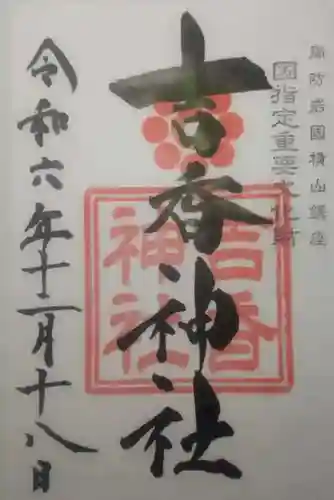 周防岩国横山鎮座
国指定重要文化財
吉香神社
吉香
神社
令和六年十二月十八日